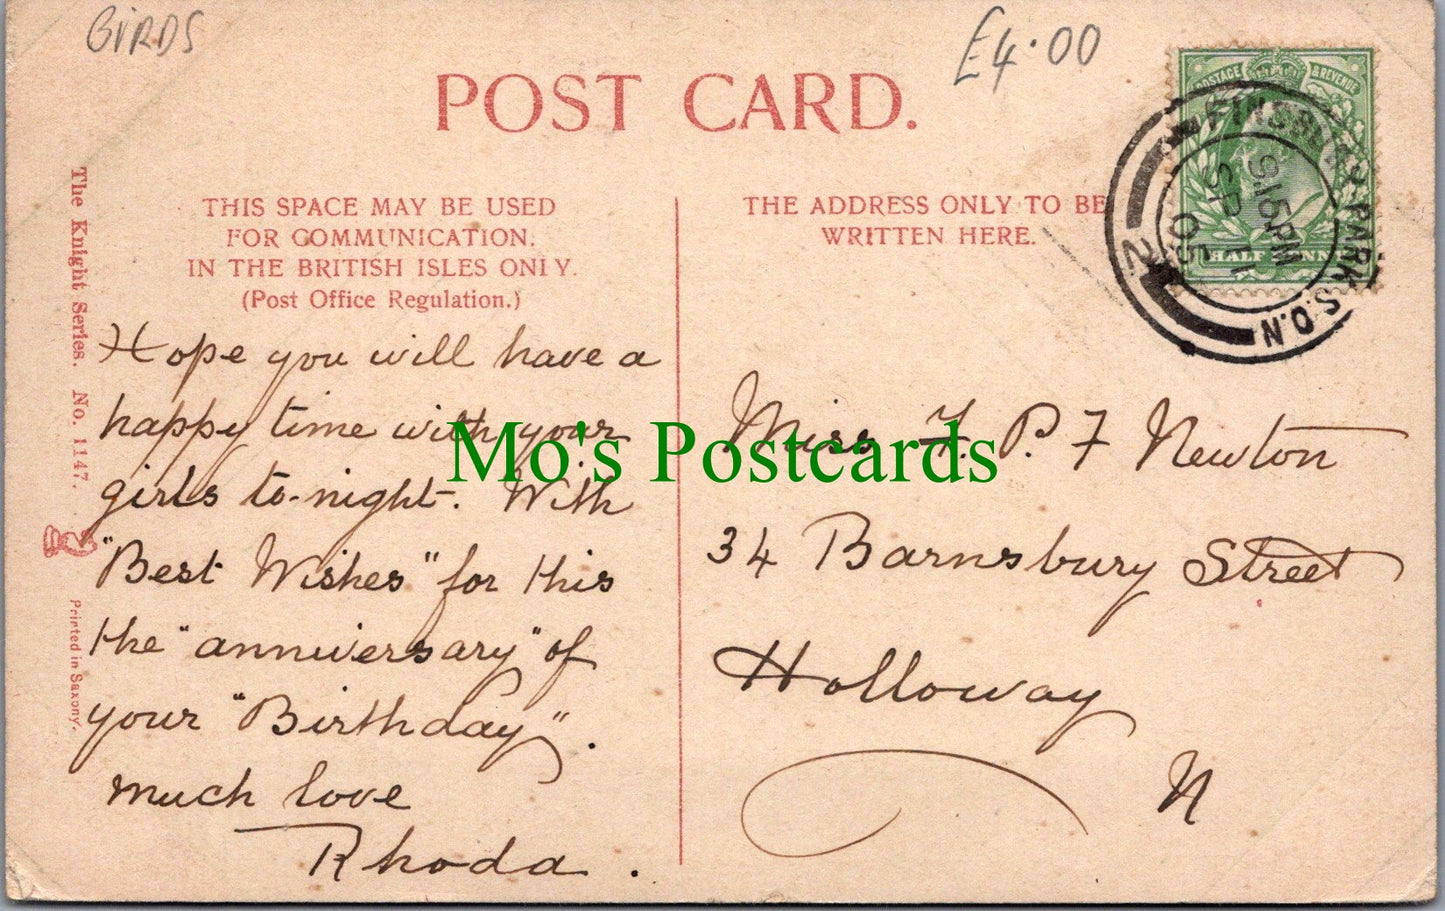 BIRDS
£4.00
POST CARD.
POSTAGE & REVENUE
HALF PENNY
FINSBURY PARK S.O.N
9.15PM
SP 11
05
2
THIS SPACE MAY BE USED
FOR COMMUNICATION.
IN THE BRITISH ISLES ONLY.
(Post Office Regulation.)
THE ADDRESS ONLY TO BE
WRITTEN HERE.
The Knight Series. No. 1147.
Printed in Saxony.
Hope you will have a
happy time with your
girls to-night. With
"Best Wishes" for this
the "anniversary" of
your "Birthday".
much love
Rhoda.
Miss F. P. F Newton
34 Barnsbury Street
Holloway
N
Mo's Postcards